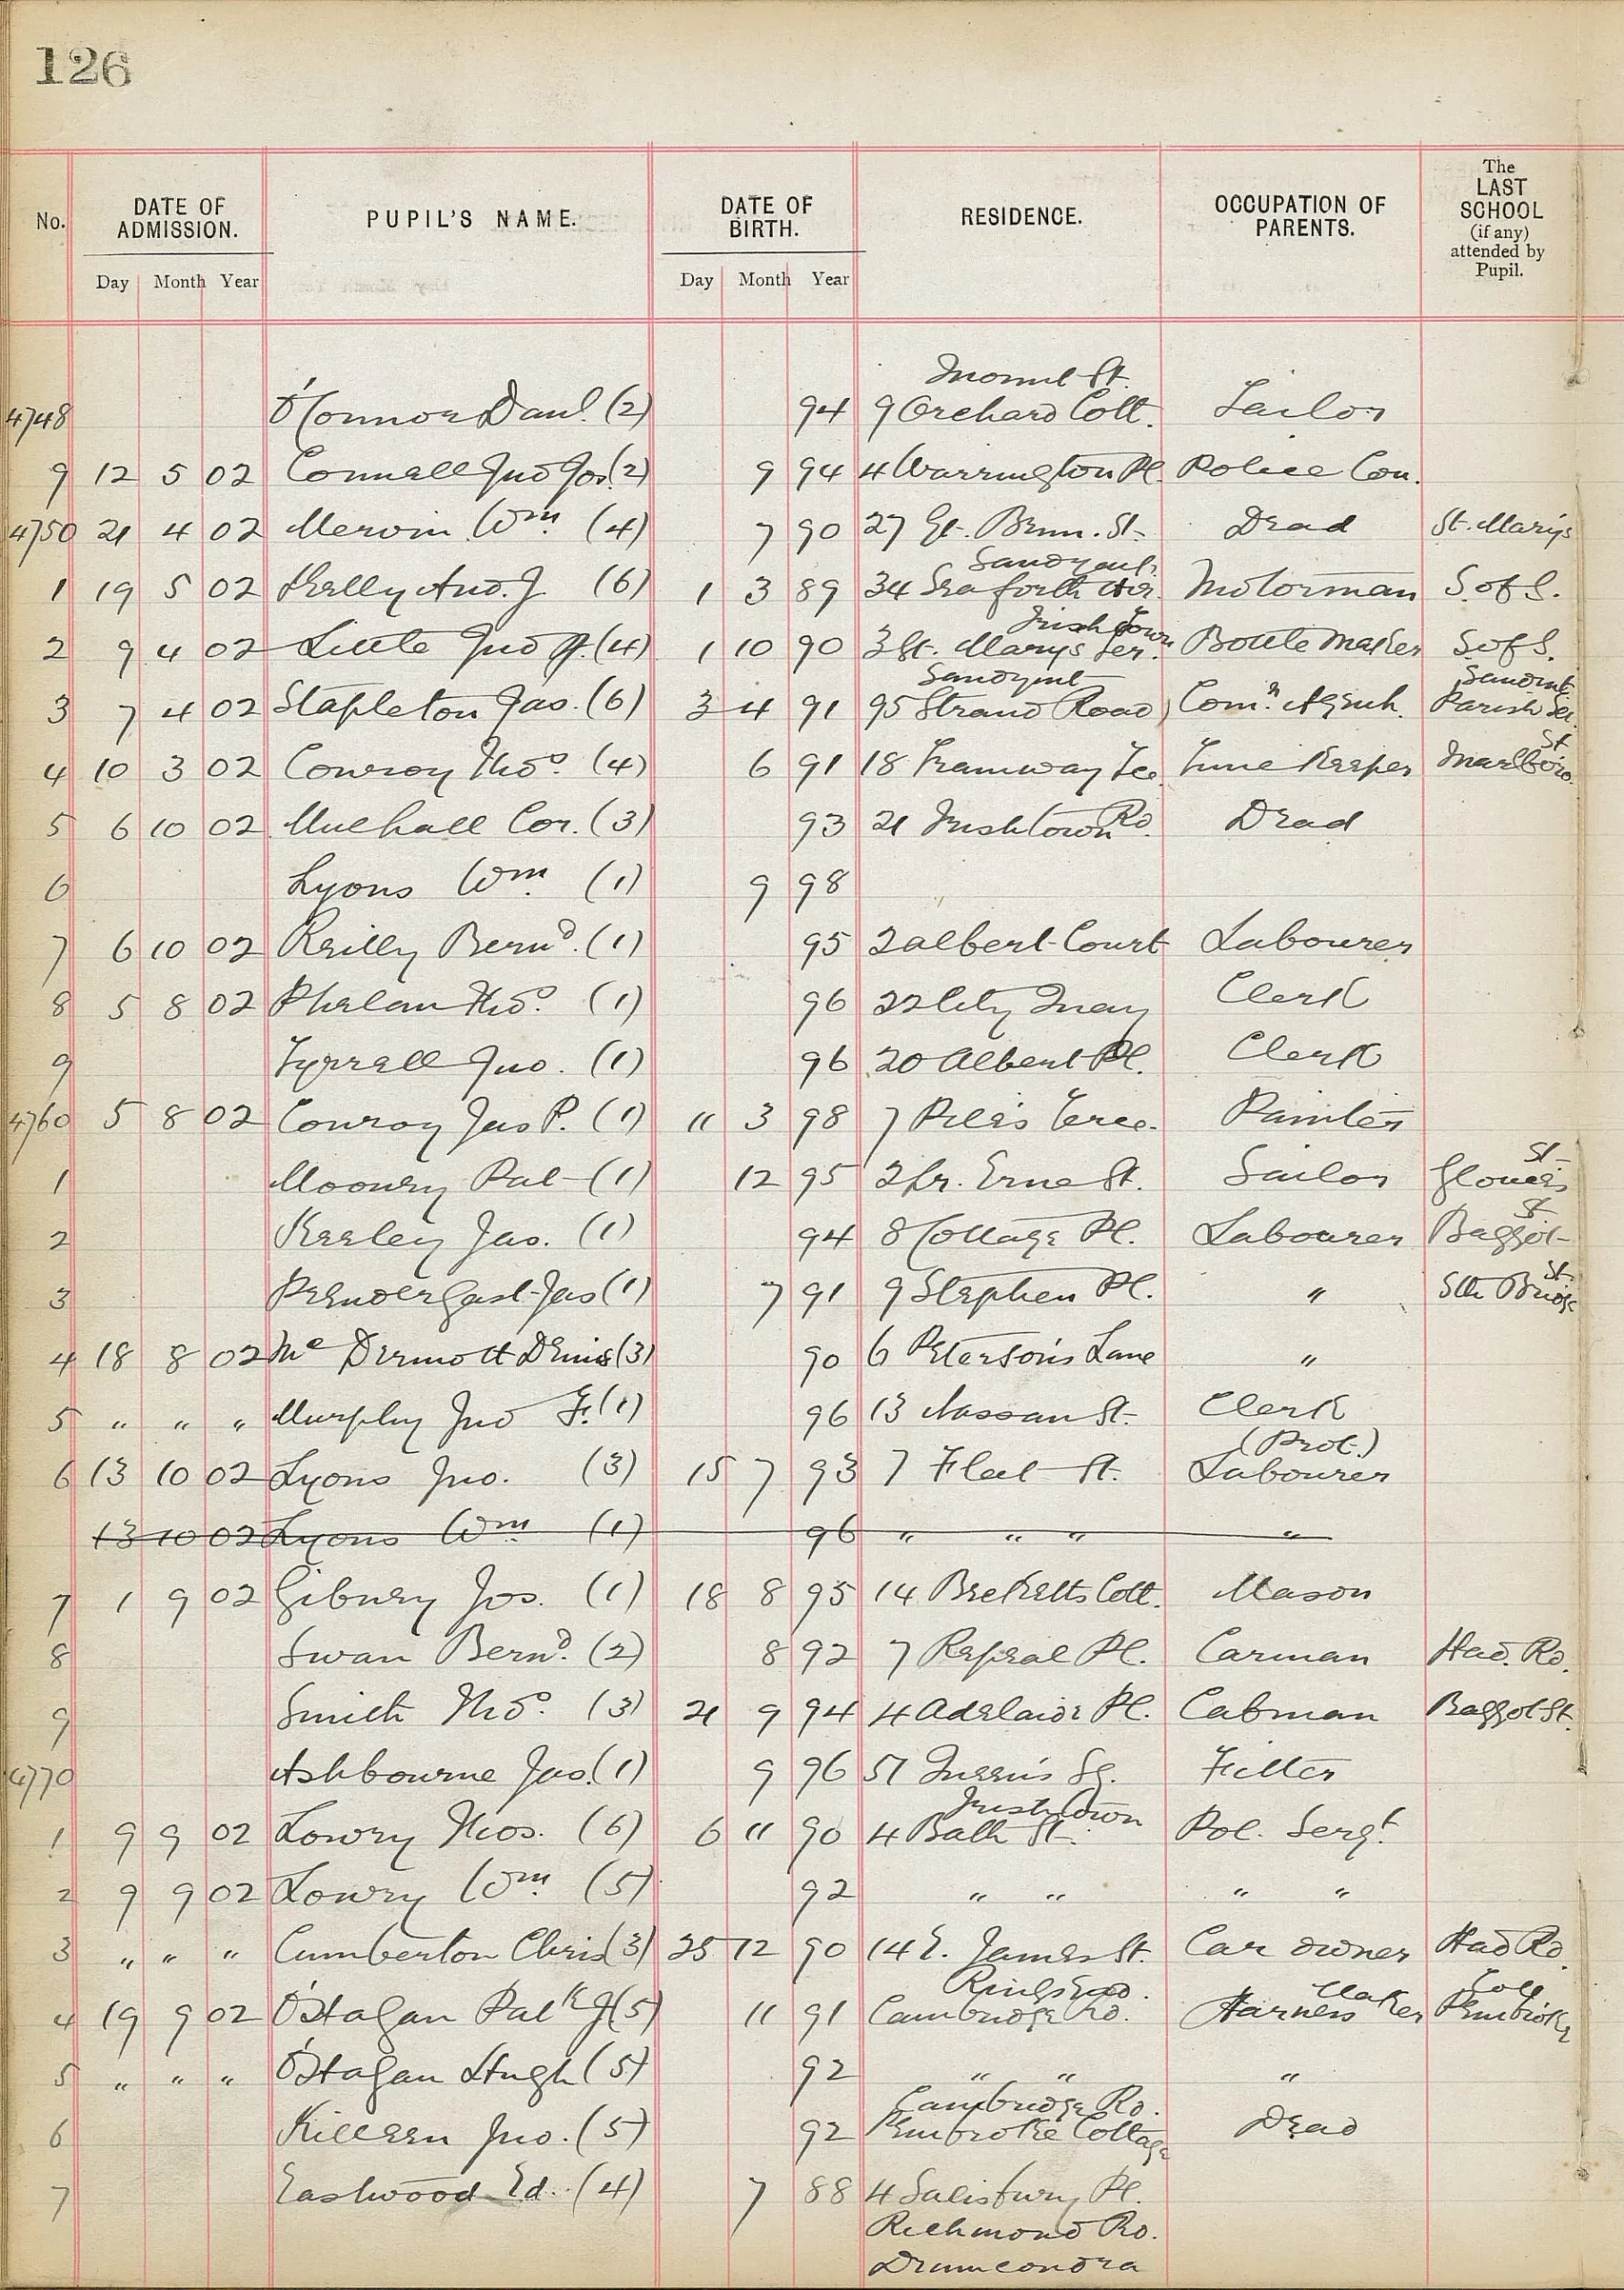 126
No. DATE OF ADMISSION. PUPIL'S NAME. DATE OF BIRTH. RESIDENCE. OCCUPATION OF PARENTS. The LAST SCHOOL (if any) attended by Pupil.
Day Month Year Day Month Year
St.
4748 O'Connor Danl. (2) 94 9 Orchard Cott. Tailor
9 12 5 02 Connell Jno Jos. (2) 9 94 4 Warrington Pl. Police Con.
4750 21 4 02 Mervin Wm. (4) 7 90 27 Gt. Brun. St. Dead St. Marys
Sandymt.
1 19 5 02 Kelly And. J. (6) 1 3 89 34 Seaforth Ave. Motorman S. of S.
Irishtown
2 9 4 02 Little Jno (4) 1 10 90 3 St. Marys Ter. Bottle Maker S. of S.
Sandymt Sandmt.
3 7 4 02 Stapleton Jas. (6) 3 4 91 95 Strand Road Comn. Agent. Parish
St
4 10 3 02 Conroy Thos. (4) 6 91 18 Tramway Tce Time Keeper Marlboro
5 6 10 02 Mulhall Cor. (3) 93 21 Irishtown Rd. Dead
6 Lyons Wm. (1) 9 98
7 6 10 02 Reilly Bernd. (1) 95 2 Albert Court Labourer
8 5 8 02 Phelan Thos. (1) 96 22 City Quay Clerk
9 Tyrrell Jno. (1) 96 20 Albert Pl. Clerk
4760 5 8 02 Conroy Jas P. (1) 11 3 98 7 Terce. Painter
St
1 Mooney Pat (1) 12 95 2 Lr. Erne St. Sailor Glouces
St
2 Keeley Jas. (1) 94 8 Cottage Pl. Labourer Baggot
St.
3 Prendergast Jas (1) 7 91 9 Stephen Pl. " Sth Bridge
4 18 8 02 Mc Dermott Denis (3) 90 6 Peterson's Lane "
5 " " " Murphy Jno F. (1) 96 13 Nassau St. Clerk
(Prot.)
6 13 10 02 Lyons Jno. (3) 15 7 93 7 Fleet St. Labourer
13 10 02 Lyons Wm. (1) 96 " " " "
7 1 9 02 Gibney Jos. (1) 18 8 95 14 Bretketts Cott. Mason
8 Swan Bernd. (2) 8 92 7 Repeal Pl. Carman Had. Rd.
9 Smith Thos. (3) 21 9 94 4 Adelaide Pl. Cabman Baggot St.
4770 Ashbourne Jas. (1) 9 96 51 Queen's Sq. Fitter
Irishtown
1 9 9 02 Lowry Thos. (6) 6 11 90 4 Bath St. Pol. Sergt.
2 9 9 02 Lowry Wm. (5) 92 " " " "
3 " " " Cumberton Chris (3) 25 12 90 14 E. James St. Car owner Had Rd.
Ringsend. Maker
4 19 9 02 O'Hagan Patk J (5) 11 91 Cambridge Rd. Harness Pembroke
5 " " " O'Hagan Hugh (5) 92 " " "
Cambridge Rd.
6 Killeen Jno. (5) 92 Pembroke Cottage Dead
7 Eastwood Ed. (4) 7 88 4 Salisbury Pl.
Richmond Rd.
Drumcondra